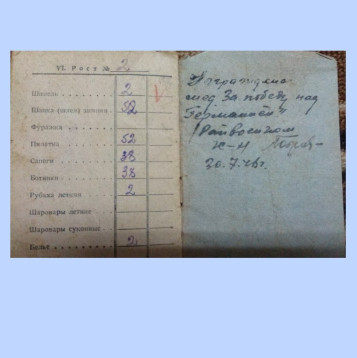 VI. Рост № 2
Шинель 2
Шапка (шлем) зимняя 52
Фуражка
Пилотка 52
Сапоги 38
Ботинки 38
Рубаха летняя 2
Шаровары летние
Шаровары суконные
Белье 2
Награждена
мед За победу над
Германией"
Райвоенком
к-н
20.7.46г.